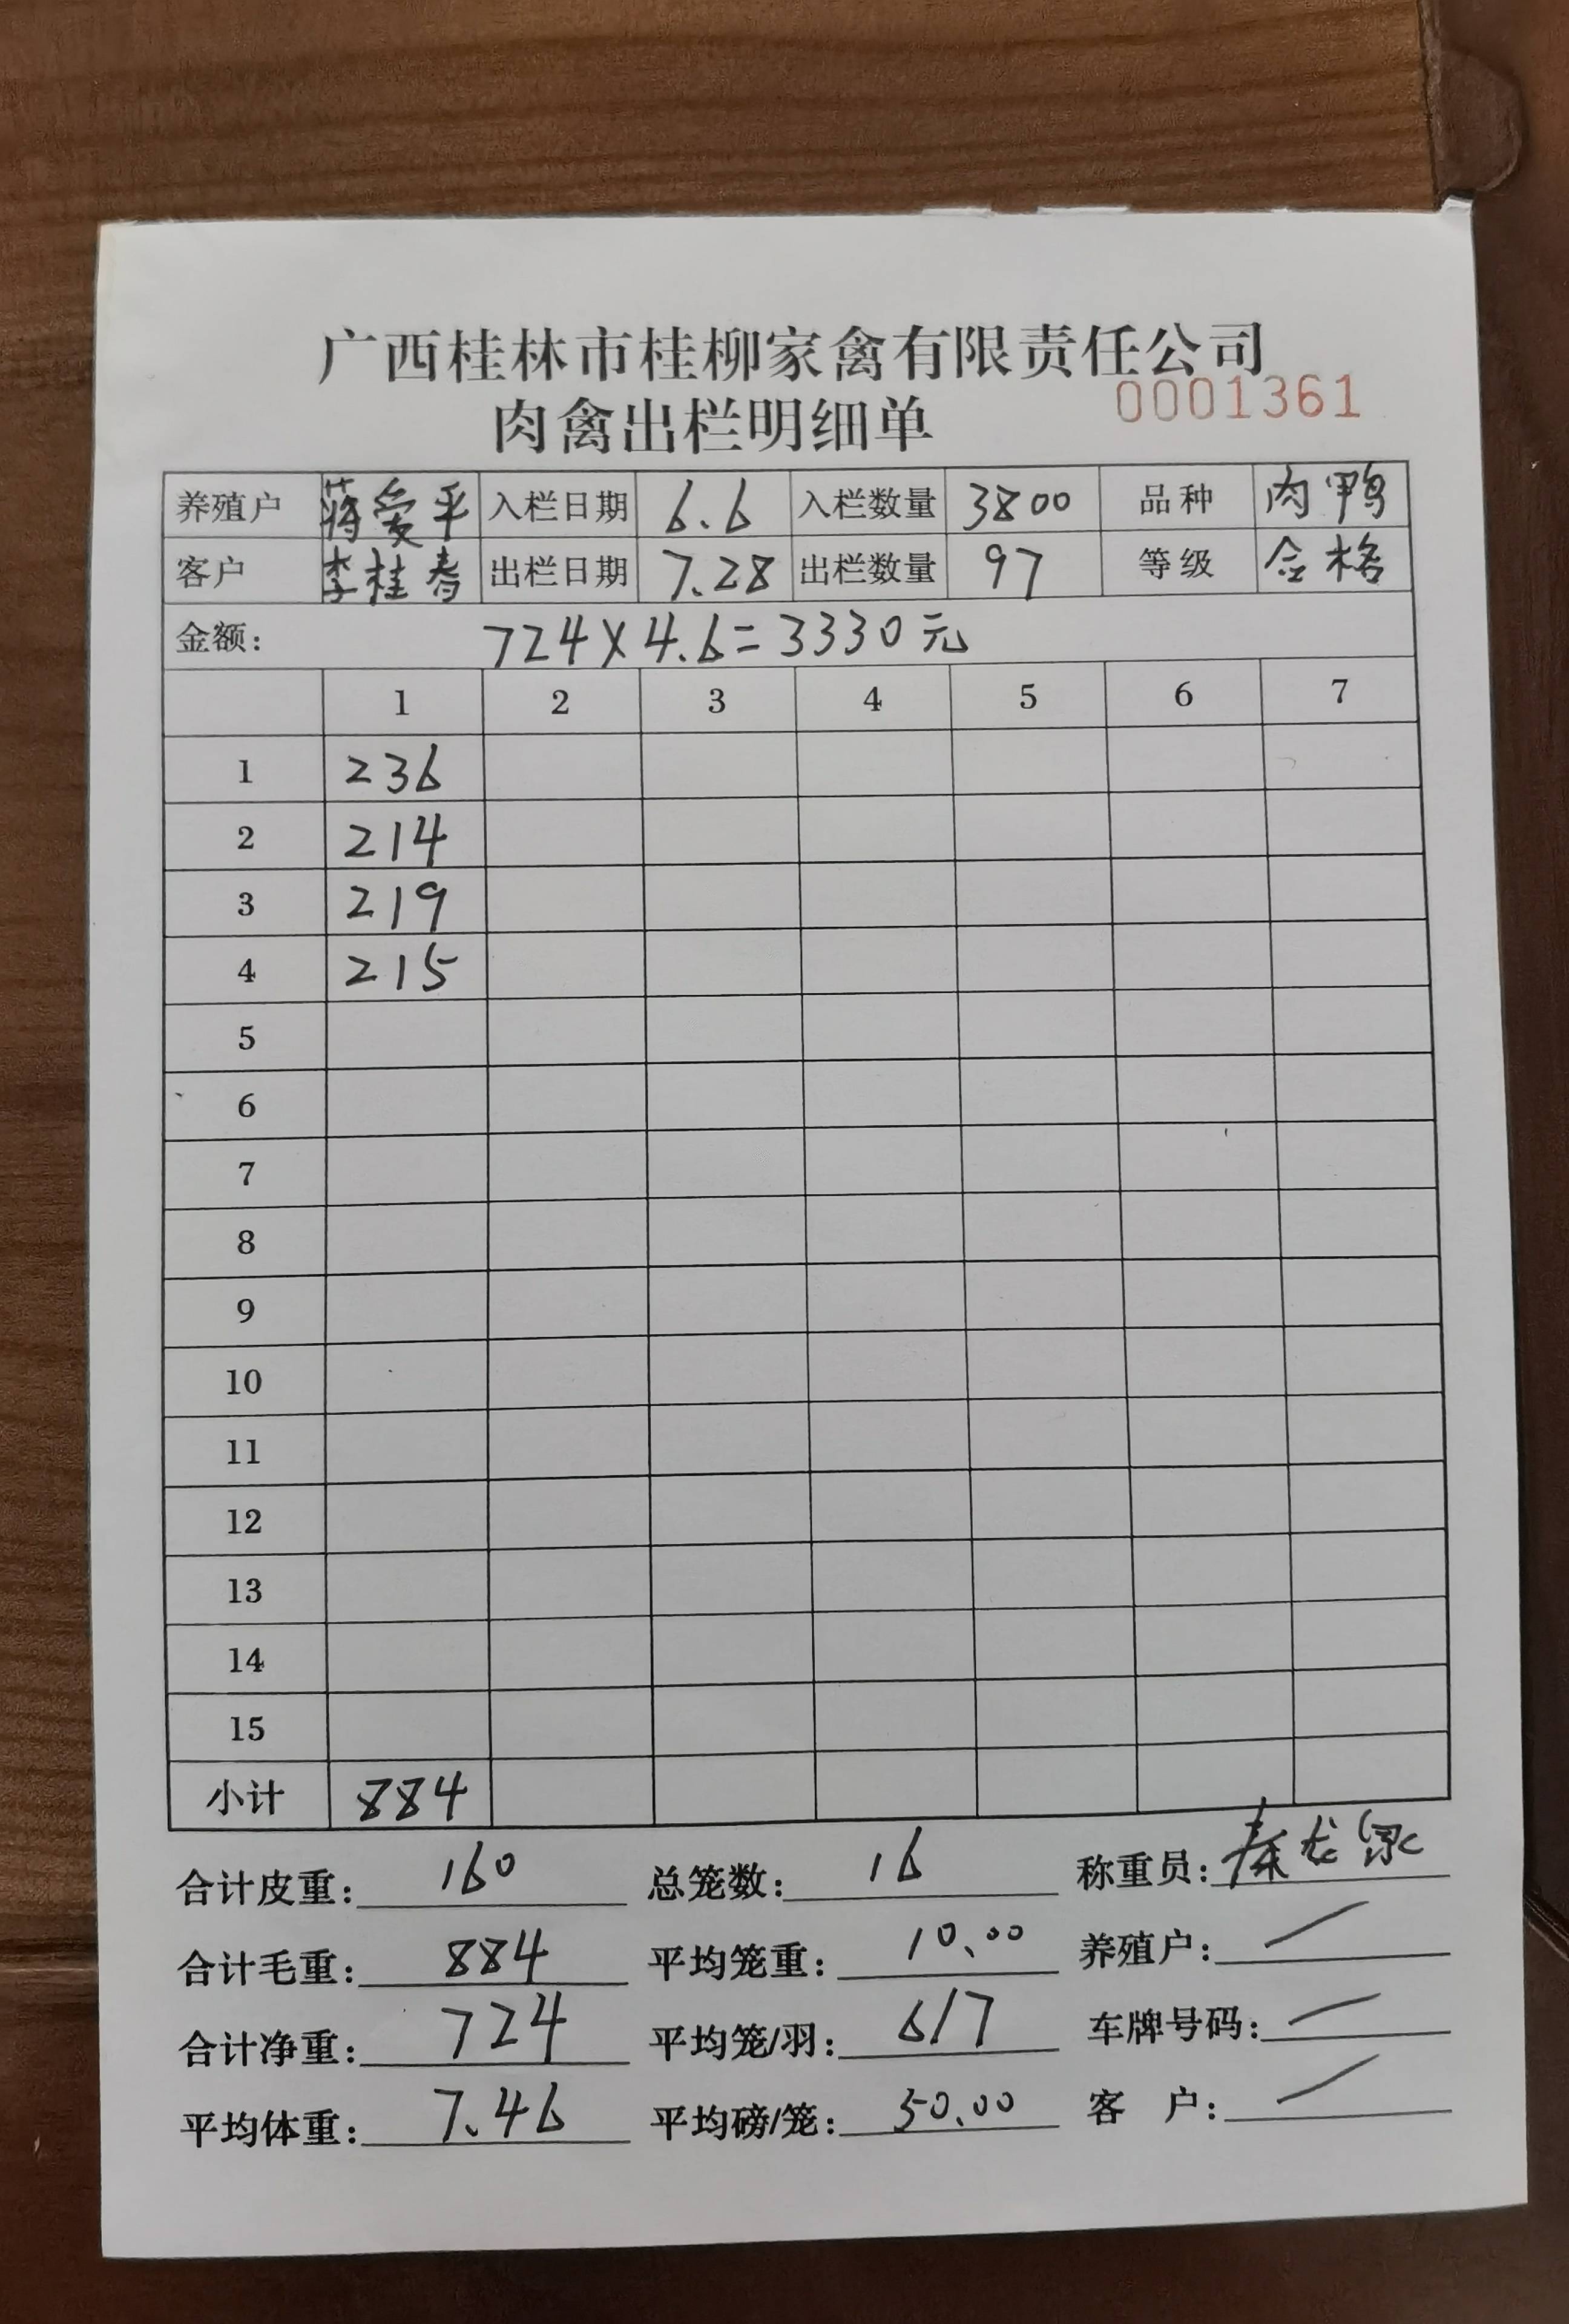 广西桂林市桂柳家禽有限责任公司
肉禽出栏明细单 0001361
养殖户 蒋爱平 入栏日期 6.6 入栏数量 3800 品种 肉鸭
客户 李桂春 出栏日期 7.28 出栏数量 97 等级 合格
金额: 724×4.6=3330元
1 2 3 4 5 6 7
1 236
2 214
3 219
4 215
5
6
7
8
9
10
11
12
13
14
15
小计 884
合计皮重: 160 总笼数: 16 称重员: 秦龙
合计毛重: 884 平均笼重: 10.00 养殖户: /
合计净重: 724 平均笼/羽: 6/7 车牌号码: /
平均体重: 7.46 平均磅/笼: 50.00 客 户: /